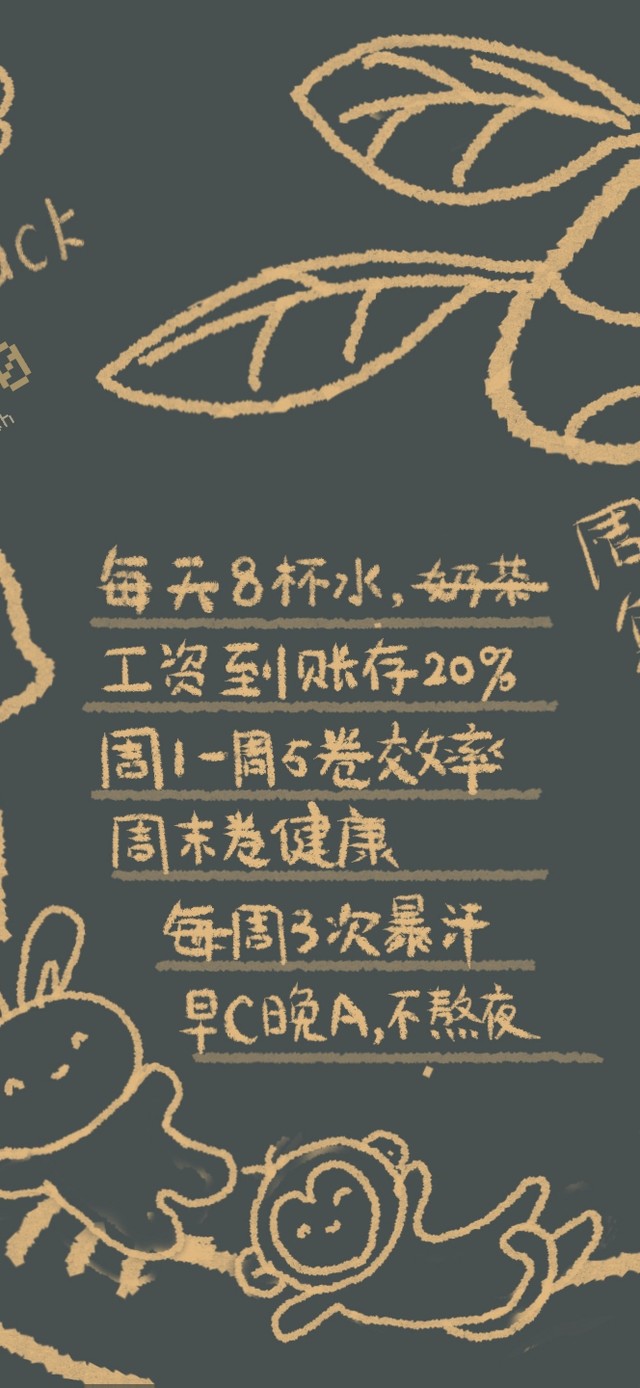 ck
每天8杯水,奶茶
工资到账存20%
周1-周5卷效率
周末卷健康
每周3次暴汗
早C晚A,不熬夜
周